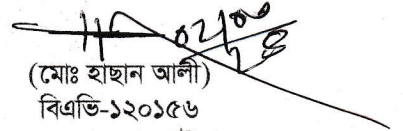 (মোঃ হাছান আলী)
বিএভি-১২০১৫৬